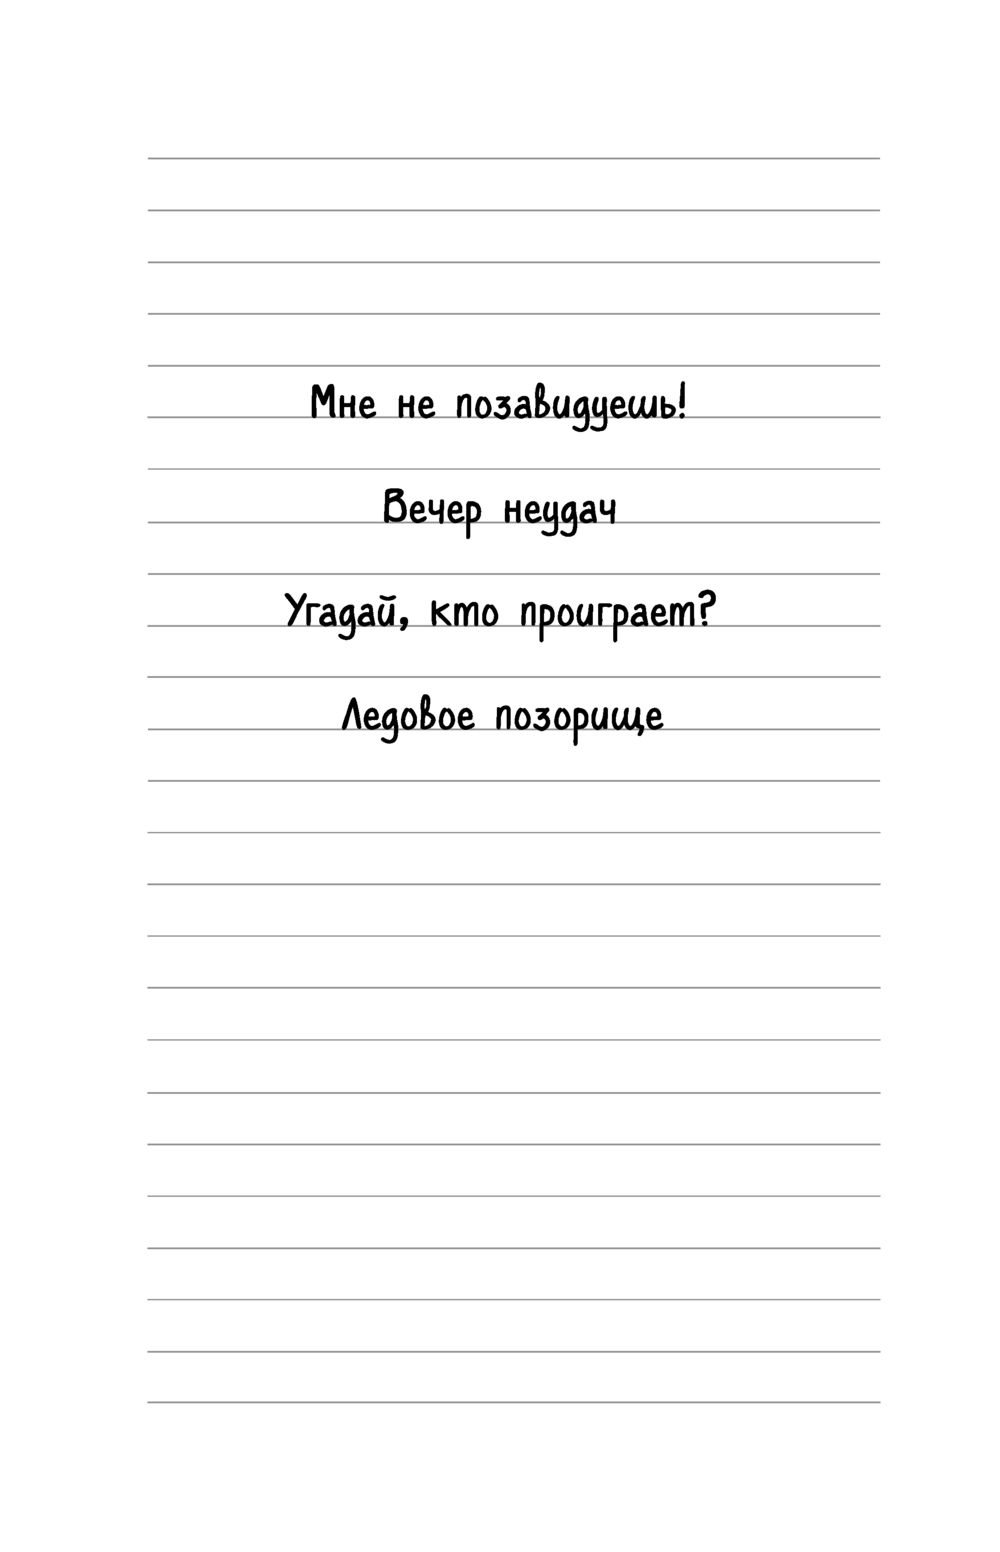 Мне не позавидуешь!
Вечер неудач
Угадай, кто проиграет?
Ледовое позорище